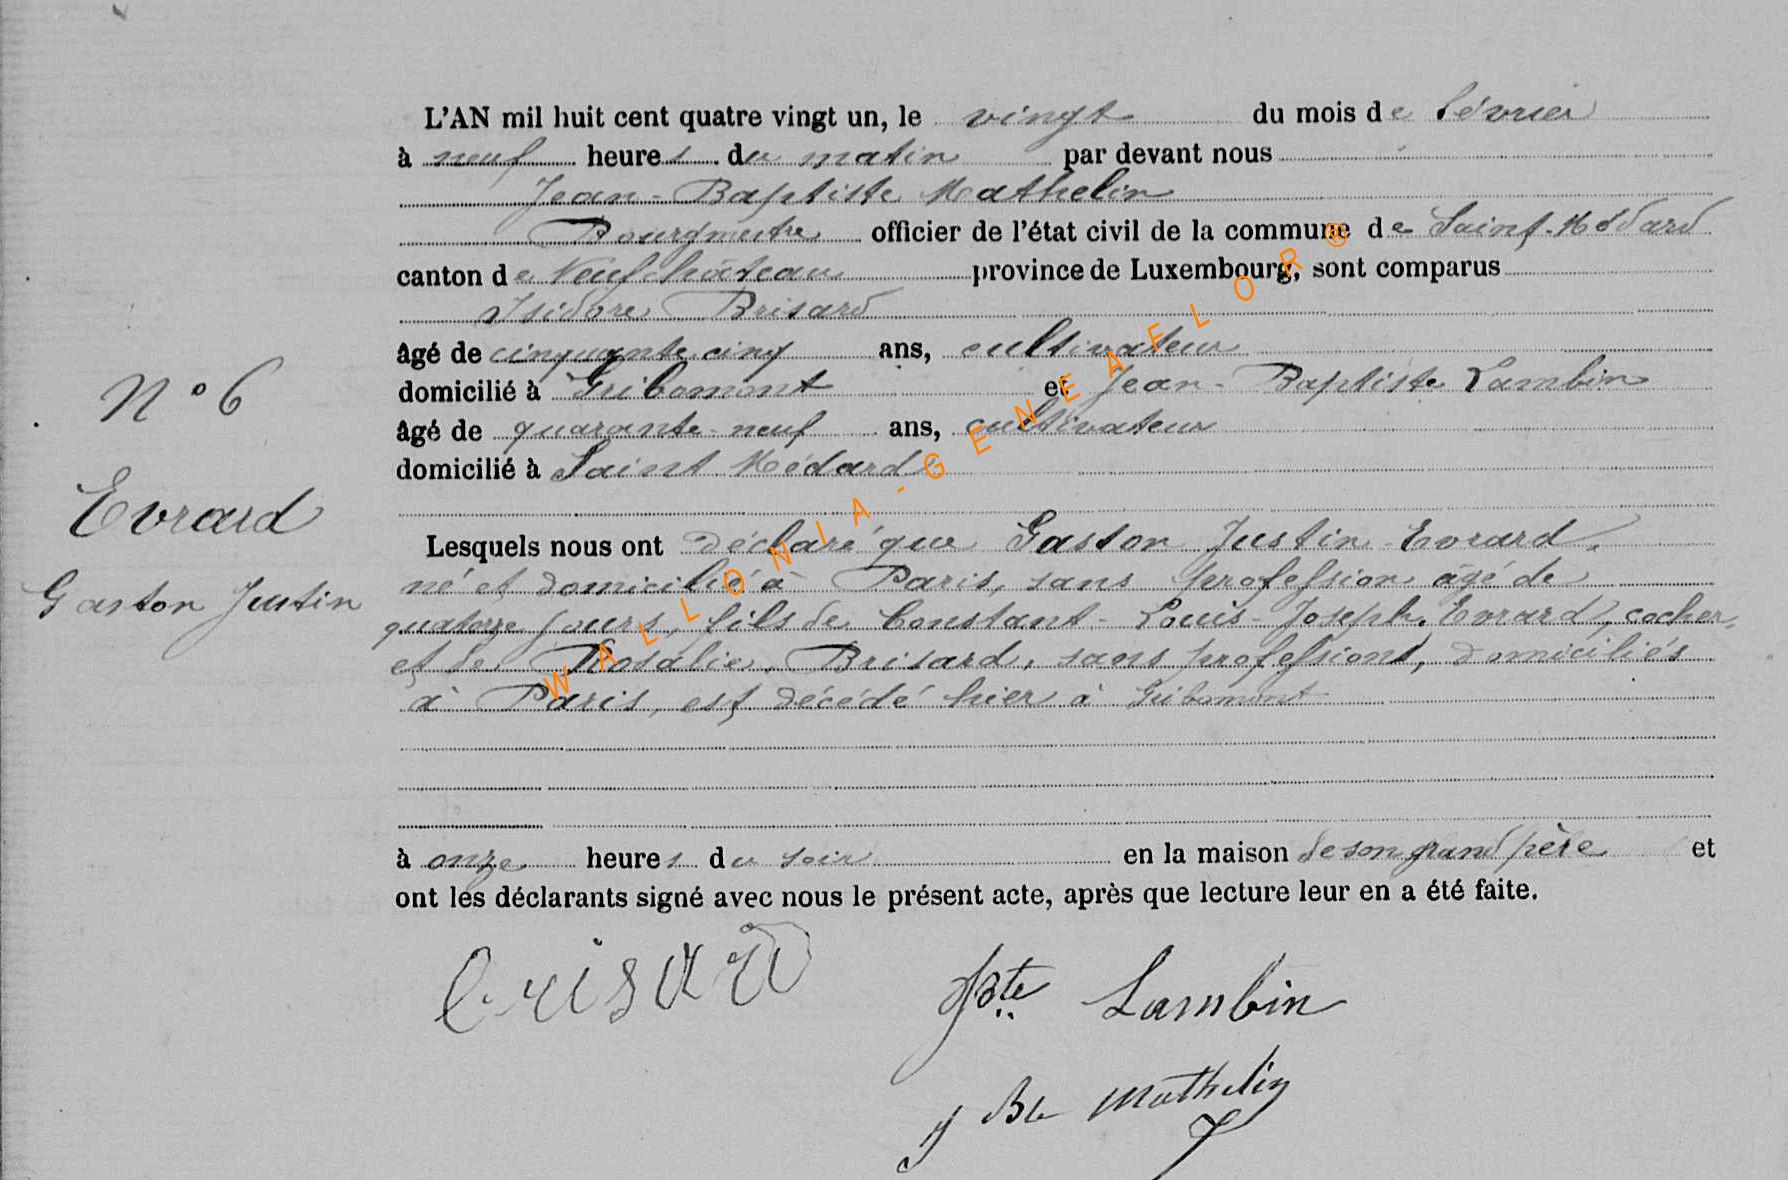 L'AN mil huit cent quatre vingt un, le vingt du mois de février
à neuf heures du matin par devant nous
Jean-Baptiste Mathelin
Bourgmestre officier de l'état civil de la commune de Saint-Médard
canton de Neufchâteau province de Luxembourg, sont comparus
Isidore Brisard
âgé de cinquante cinq ans, cultivateur
domicilié à Gribomont et Jean-Baptiste Lambin
âgé de quarante-neuf ans, cultivateur
domicilié à Saint Médard
N° 6
Evrard
Gaston Justin
Lesquels nous ont déclaré que Gaston Justin Evrard,
né et domicilié à Paris, sans profession âgé de
quatorze jours, fils de Constant-Louis-Joseph Evrard, cocher,
et de Rosalie Brisard, sans profession, domiciliés
à Paris, est décédé hier à Gribomont
à onze heures du soir en la maison de son grand père et
ont les déclarants signé avec nous le présent acte, après que lecture leur en a été faite.
Brisard
JBte Lambin
J Bte Mathelin
WALLONIA-GENEAFLOR®